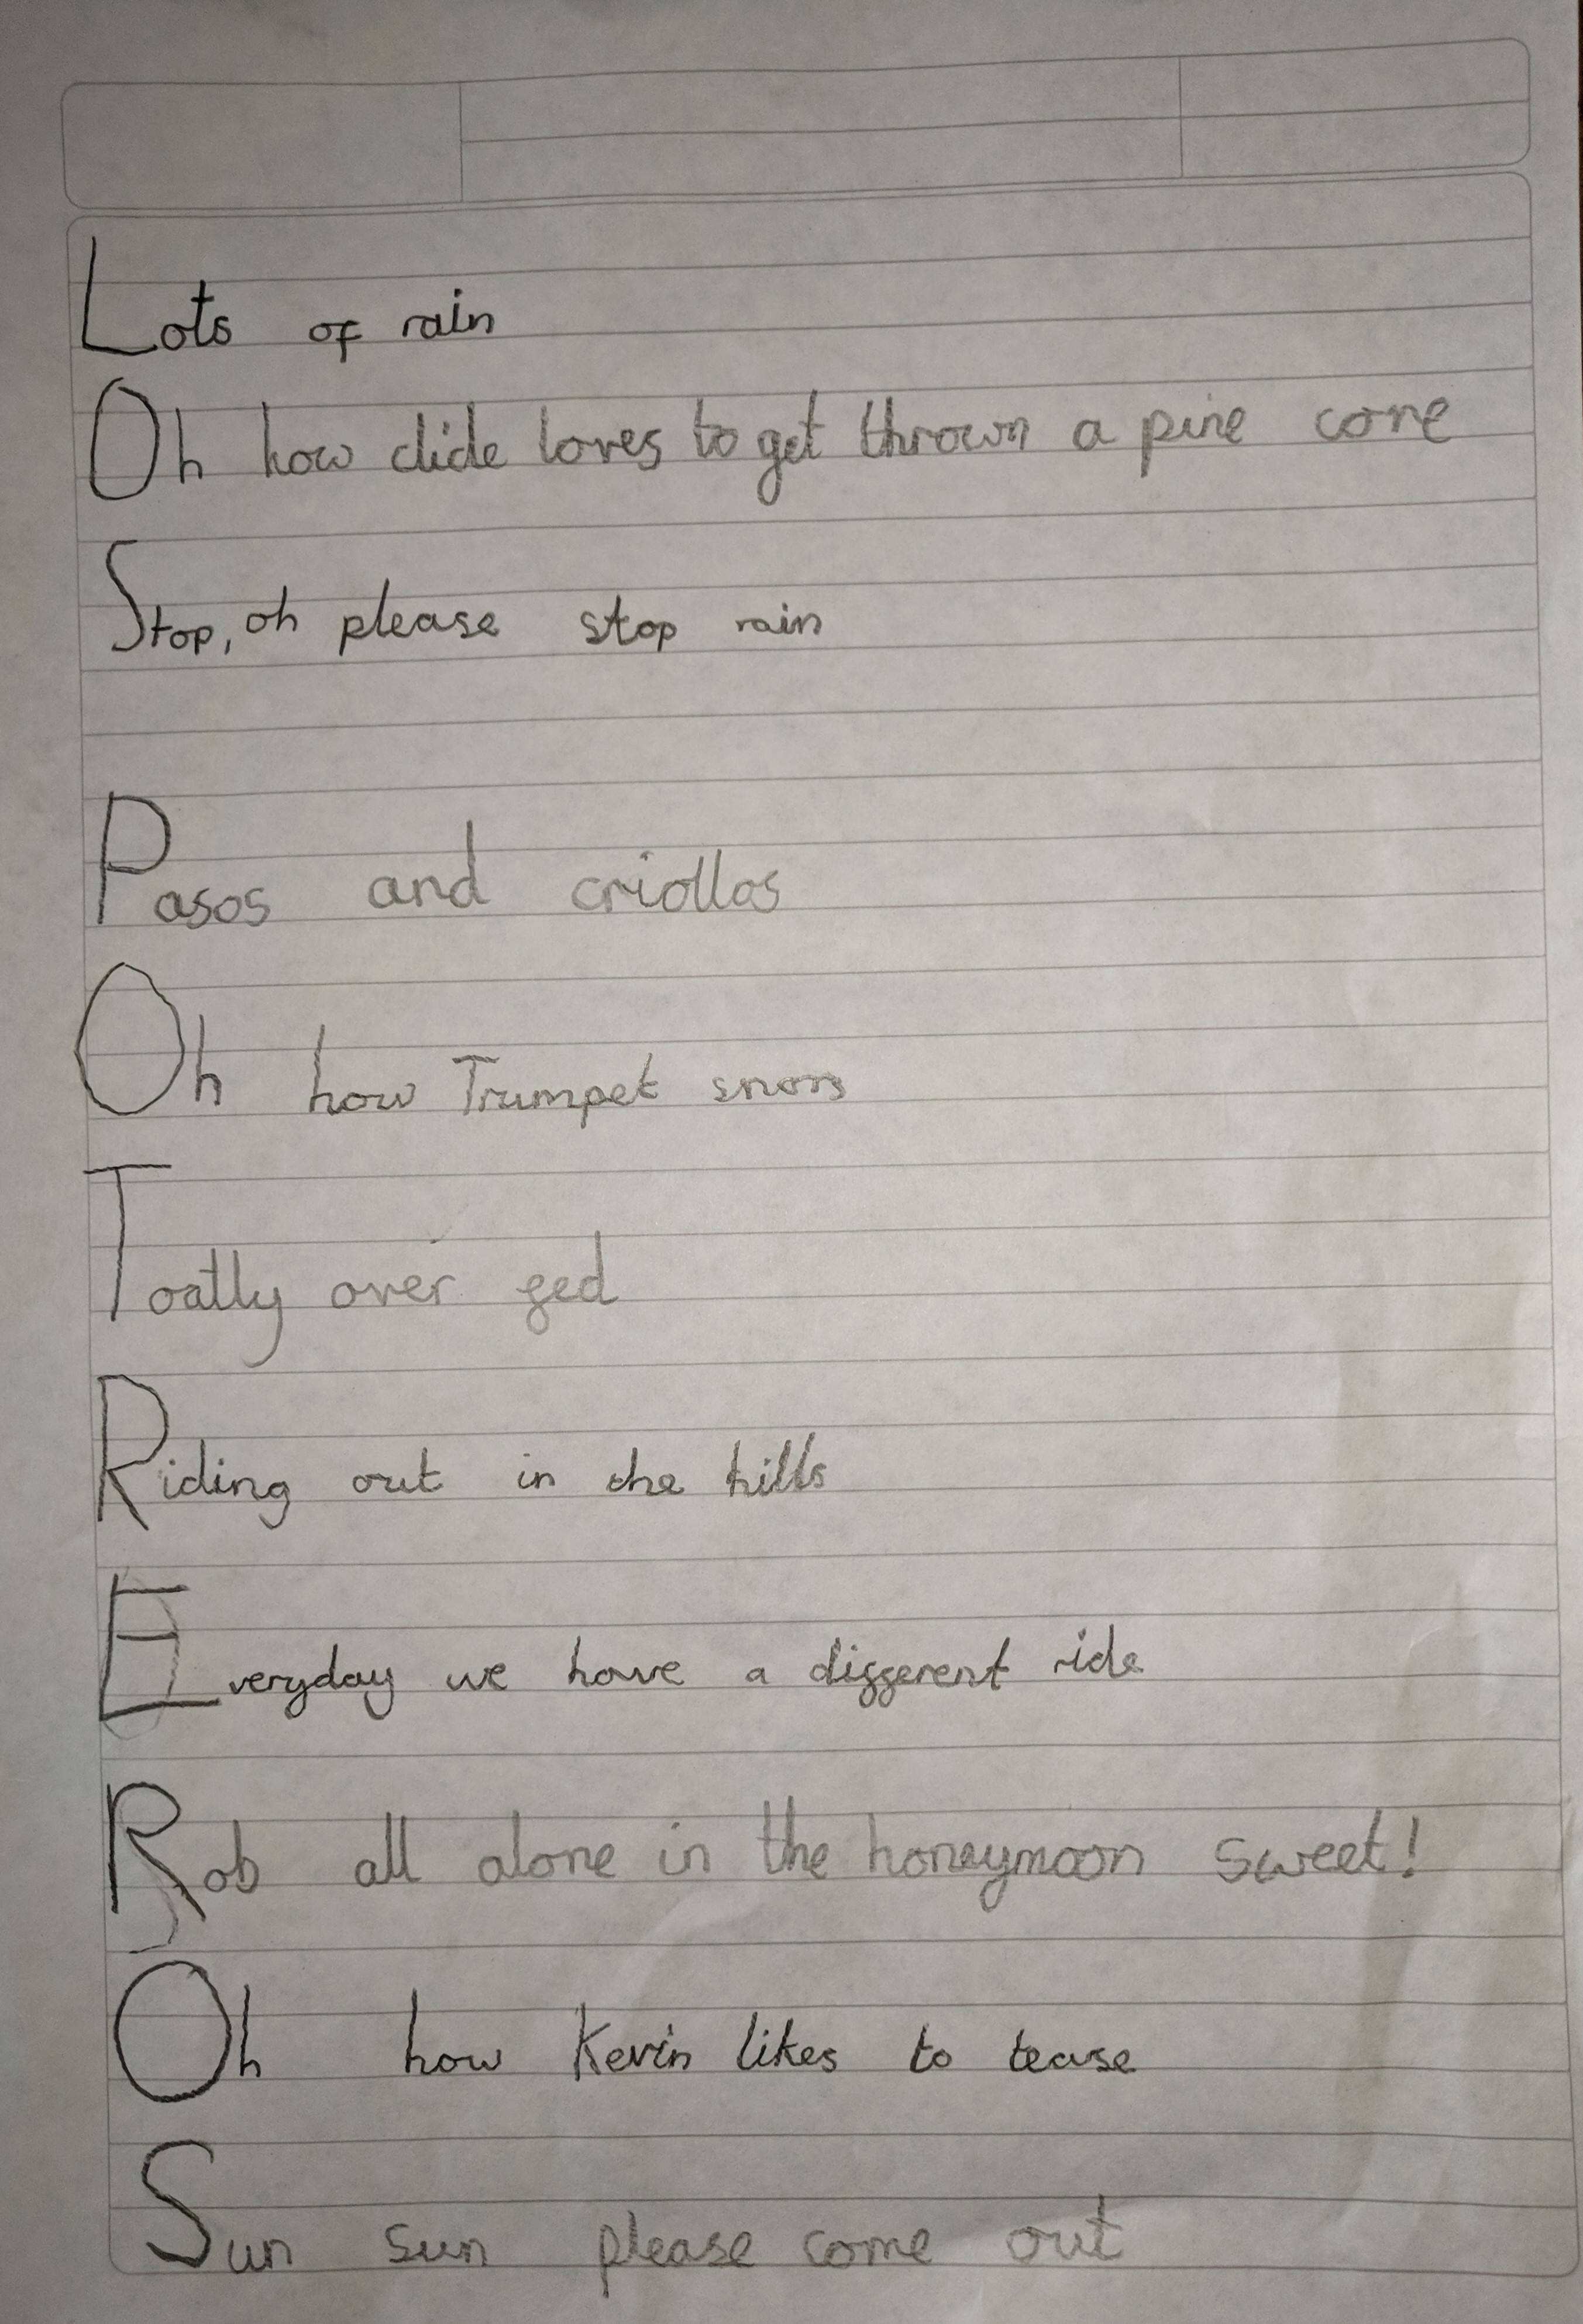 Lots of rain
Oh how clide loves to get thrown a pine cone
Stop, oh please stop rain
Pasos and criollos
Oh how Trumpet snors
Toatly over fed
Riding out in the hills
Everyday we have a different ride
Rob all alone in the honeymoon sweet!
Oh how Kevin likes to tease
Sun sun please come out